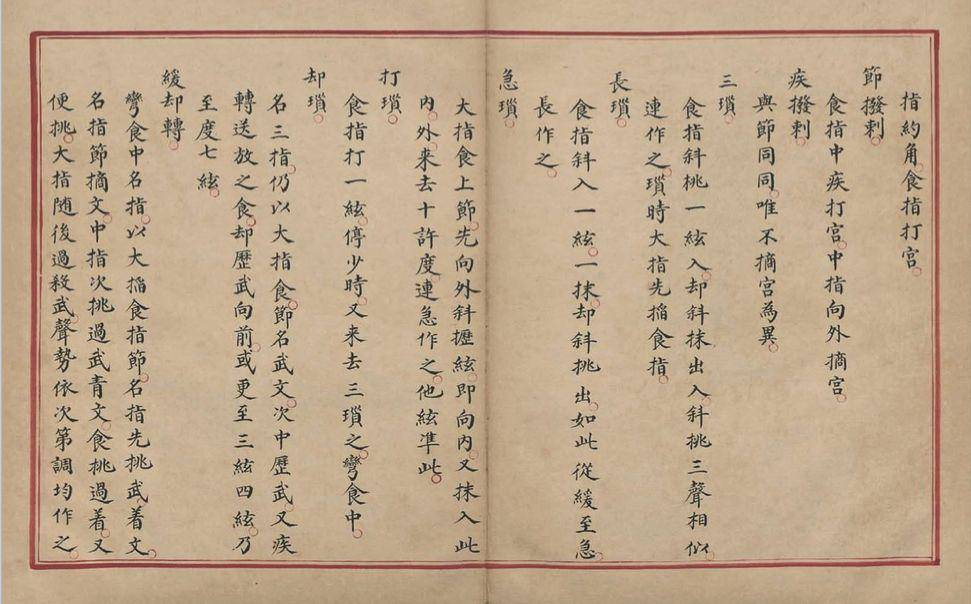 指約角食指打宮
節撥剌
食指中疾打宮中指向外摘宮
疾撥剌
與節同同唯不摘宮為異
三瑣
食指斜挑一絃入却斜抹出入斜挑三聲相似
連作之瑣時大指先搯食指
長瑣
食指斜入一絃一抹却斜挑出如此從緩至急
長作之
急瑣
大指食上節先向外斜擽絃即向內又抹入此
內外来去十許度連急作之他絃準此
打瑣
食指打一絃停少時又来去三瑣之彎食中
却瑣
名三指仍以大指食節名武文次中歷武又疾
轉送放之食却歷武向前或更至三絃四絃乃
至度七絃
緩却轉
彎食中名指以大搯食指節名指先挑武着文
名指節摘文中指次挑過武青文食挑過着又
便挑大指随後過殺武聲勢依次第調均作之